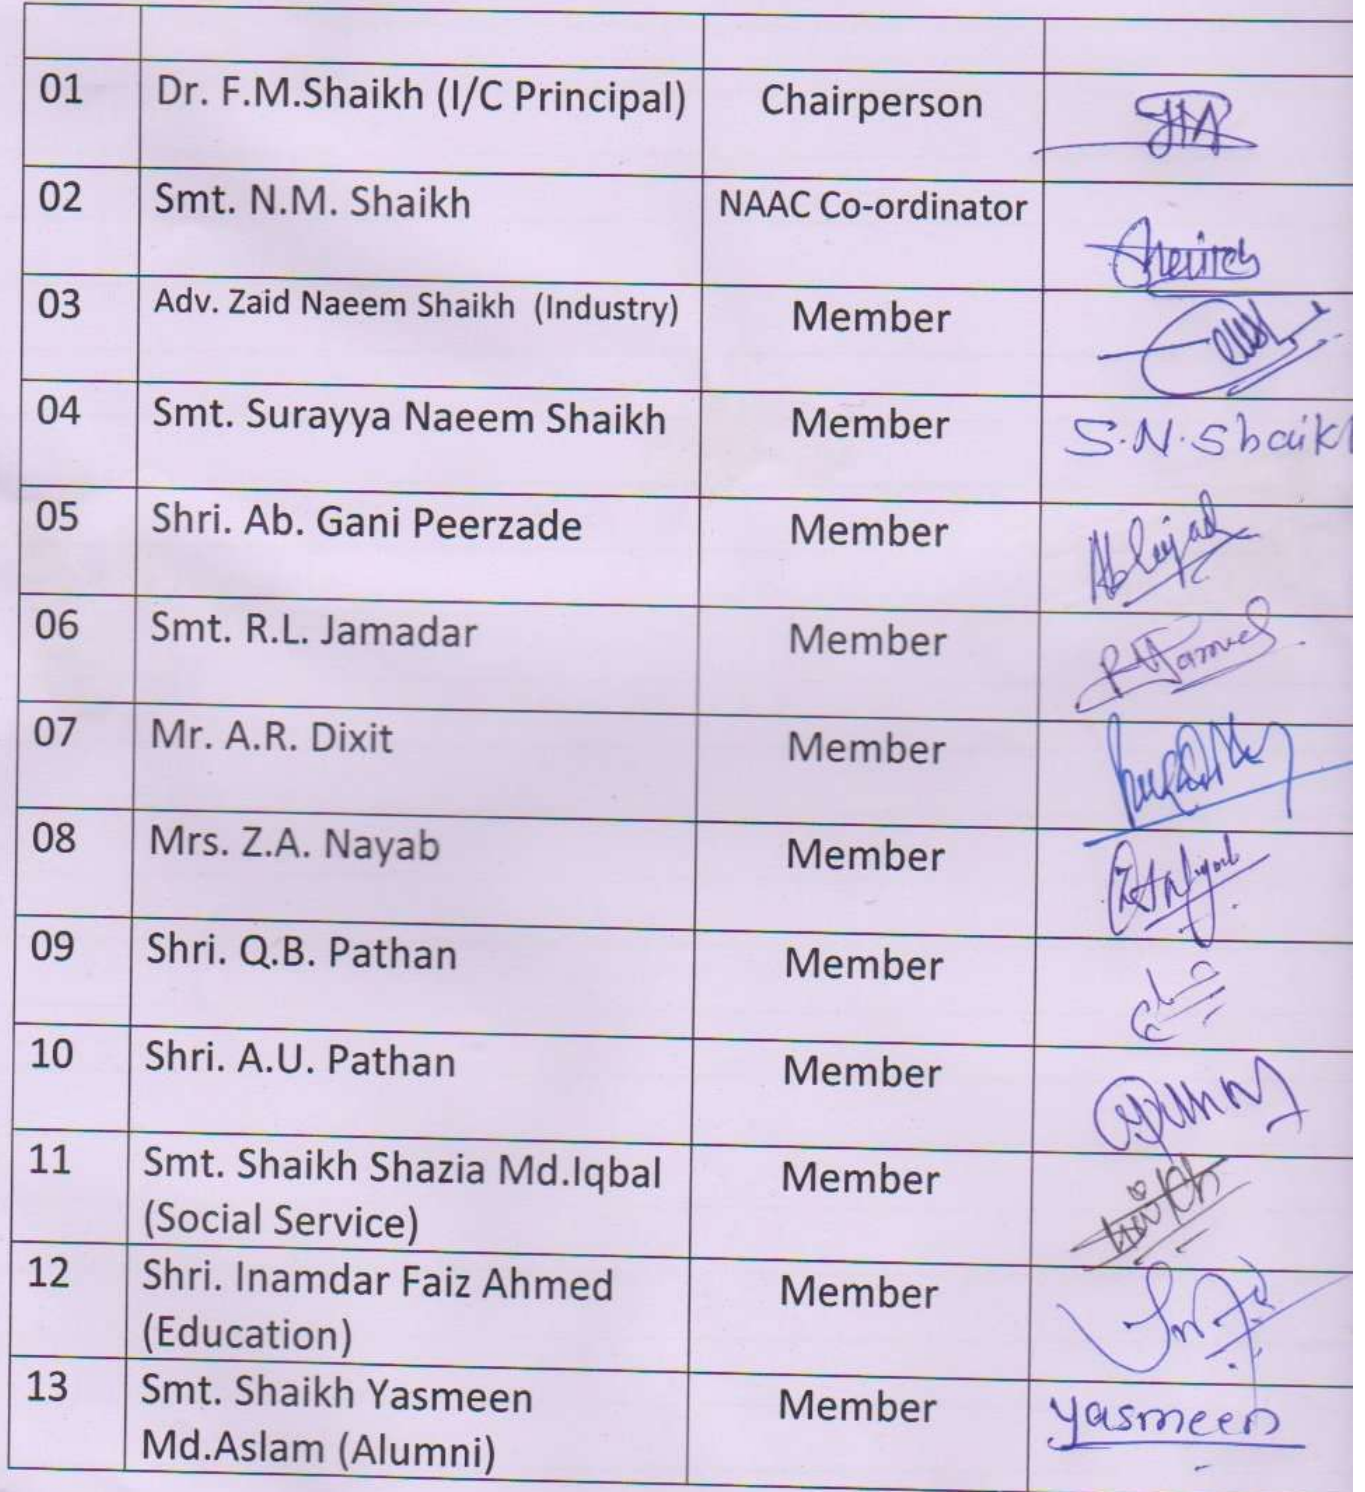 01 Dr. F.M.Shaikh (I/C Principal) Chairperson
02 Smt. N.M. Shaikh NAAC Co-ordinator
03 Adv. Zaid Naeem Shaikh (Industry) Member
04 Smt. Surayya Naeem Shaikh Member S.N.Shaikh
05 Shri. Ab. Gani Peerzade Member
06 Smt. R.L. Jamadar Member
07 Mr. A.R. Dixit Member
08 Mrs. Z.A. Nayab Member
09 Shri. Q.B. Pathan Member
10 Shri. A.U. Pathan Member
11 Smt. Shaikh Shazia Md.Iqbal Member
(Social Service)
12 Shri. Inamdar Faiz Ahmed Member
(Education)
13 Smt. Shaikh Yasmeen Member Yasmeen
Md.Aslam (Alumni)